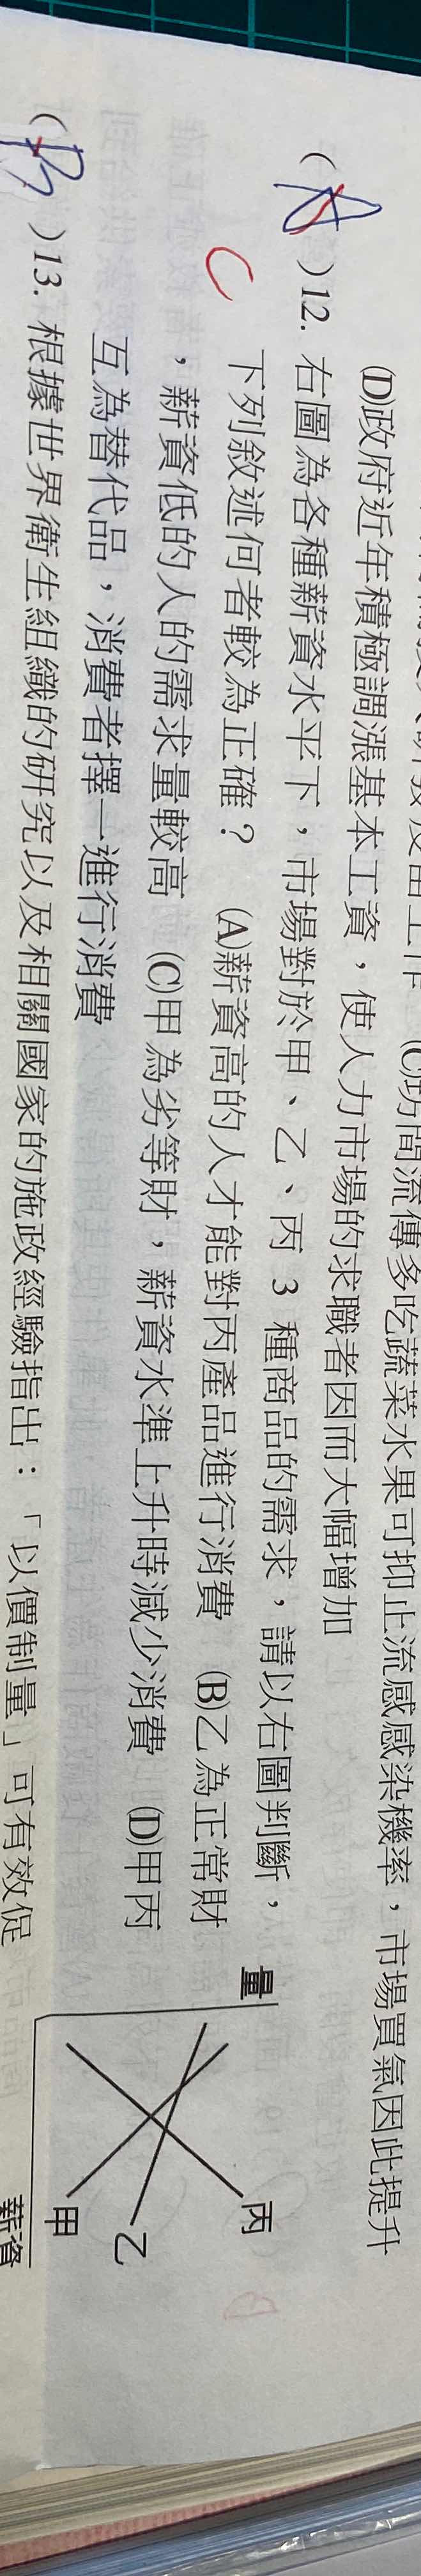 (C)坊間流傳多吃蔬菜水果可抑止流感感染機率，市場買氣因此提升
(D)政府近年積極調漲基本工資，使人力市場的求職者因而大幅增加
( A )12. 右圖為各種薪資水平下，市場對於甲、乙、丙 3 種商品的需求，請以右圖判斷，
C
下列敘述何者較為正確？ (A)薪資高的人才能對丙產品進行消費 (B)乙為正常財
，薪資低的人的需求量較高 (C)甲為劣等財，薪資水準上升時減少消費 (D)甲丙
互為替代品，消費者擇一進行消費
量
丙
乙
甲
薪資
( B )13. 根據世界衛生組織的研究以及相關國家的施政經驗指出：「以價制量」可有效促